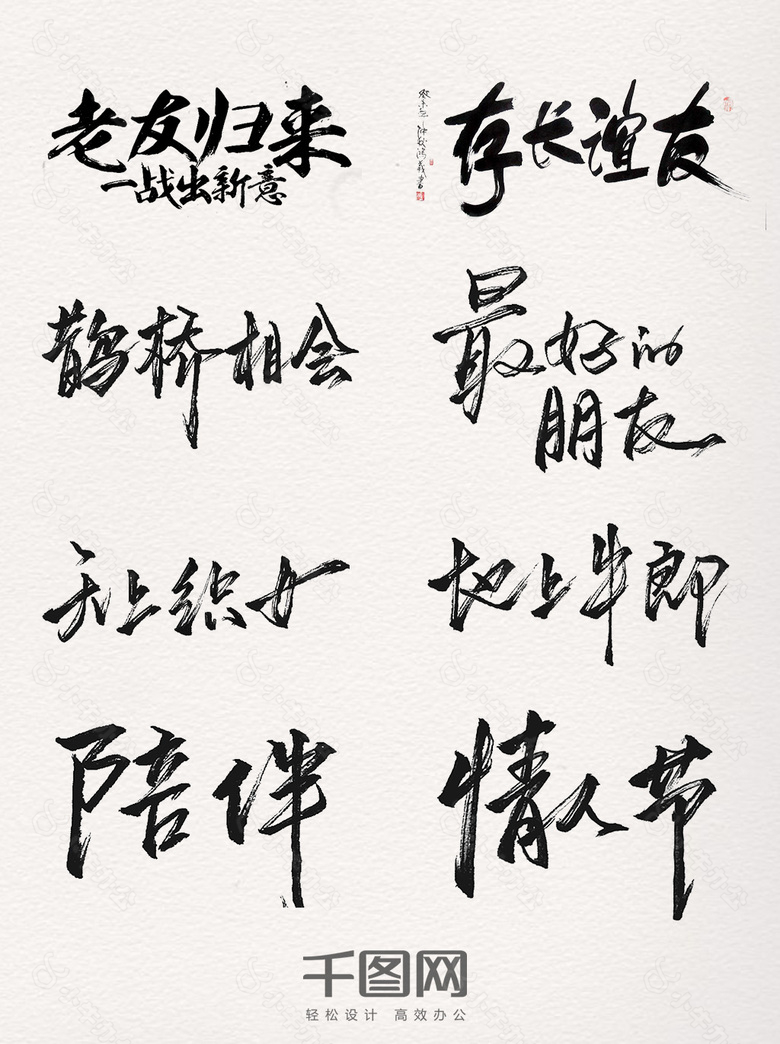 老友归来
一战出新意
存长谊友
鹊桥相会
最好的
朋友
天上织女
地上牛郎
陪伴
情人节
千图网
轻松设计 高效办公